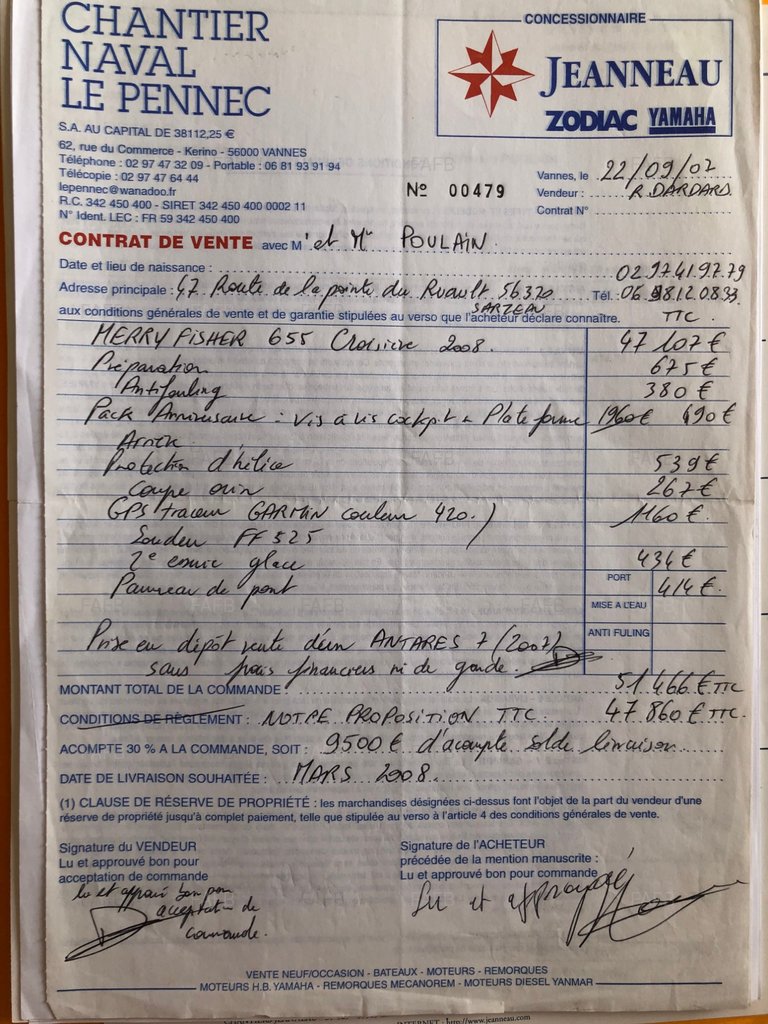 CHANTIER
NAVAL
LE PENNEC
CONCESSIONNAIRE
JEANNEAU
ZODIAC YAMAHA
S.A. AU CAPITAL DE 38112,25 €
62, rue du Commerce - Kerino - 56000 VANNES
Téléphone : 02 97 47 32 09 - Portable : 06 81 93 91 94
Télécopie : 02 97 47 64 44
lepennec@wanadoo.fr
R.C. 342 450 400 - SIRET 342 450 400 0002 11
N° Ident. LEC : FR 59 342 450 400
Nº 00479
Vannes, le 22/09/07
Vendeur : R DARDARD
Contrat N°
CONTRAT DE VENTE avec M et Mme POULAIN
Date et lieu de naissance : 02 97 41 97 79
Adresse principale : 47 Route de la pointe du Ruault 56370 SARZEAU Tél. 06 98.12.08.33
aux conditions générales de vente et de garantie stipulées au verso que l'acheteur déclare connaître. TTC
MERRY FISHER 655 Croisière 2008. 47 107 €
Préparation 675 €
Antifouling 380 €
Pack Anniversaire : Vis à vis cockpit + Plate forme 1960€ 490 €
Arrick
Protection d'hélice 539 €
Coupe orin 267 €
GPS traceur GARMIN couleur 420 ) 1160 €
Sondeur FF 525
2e essuie glace 434 €
Panneau de pont 414 €
PORT
MISE A L'EAU
ANTI FULING
Prise en dépôt vente d'un ANTARES 7 (2007)
sans frais financiers ni de garde.
MONTANT TOTAL DE LA COMMANDE : 51 466 € TTC
CONDITIONS DE RÈGLEMENT : NOTRE PROPOSITION TTC 47 860 € TTC.
ACOMPTE 30 % A LA COMMANDE, SOIT : 9500 € d'acompte solde livraison
DATE DE LIVRAISON SOUHAITÉE : MARS 2008.
(1) CLAUSE DE RÉSERVE DE PROPRIÉTÉ : les marchandises désignées ci-dessus font l'objet de la part du vendeur d'une
réserve de propriété jusqu'à complet paiement, telle que stipulée au verso à l'article 4 des conditions générales de vente.
Signature du VENDEUR
Lu et approuvé bon pour
acceptation de commande
lu et approuvé bon pour
acceptation de
commande.
Signature de l'ACHETEUR
précédée de la mention manuscrite :
Lu et approuvé bon pour commande
Lu et approuvé
VENTE NEUF/OCCASION - BATEAUX - MOTEURS - REMORQUES
MOTEURS H.B. YAMAHA - REMORQUES MECANOREM - MOTEURS DIESEL YANMAR
INTERNET - http://www.jeanneau.com